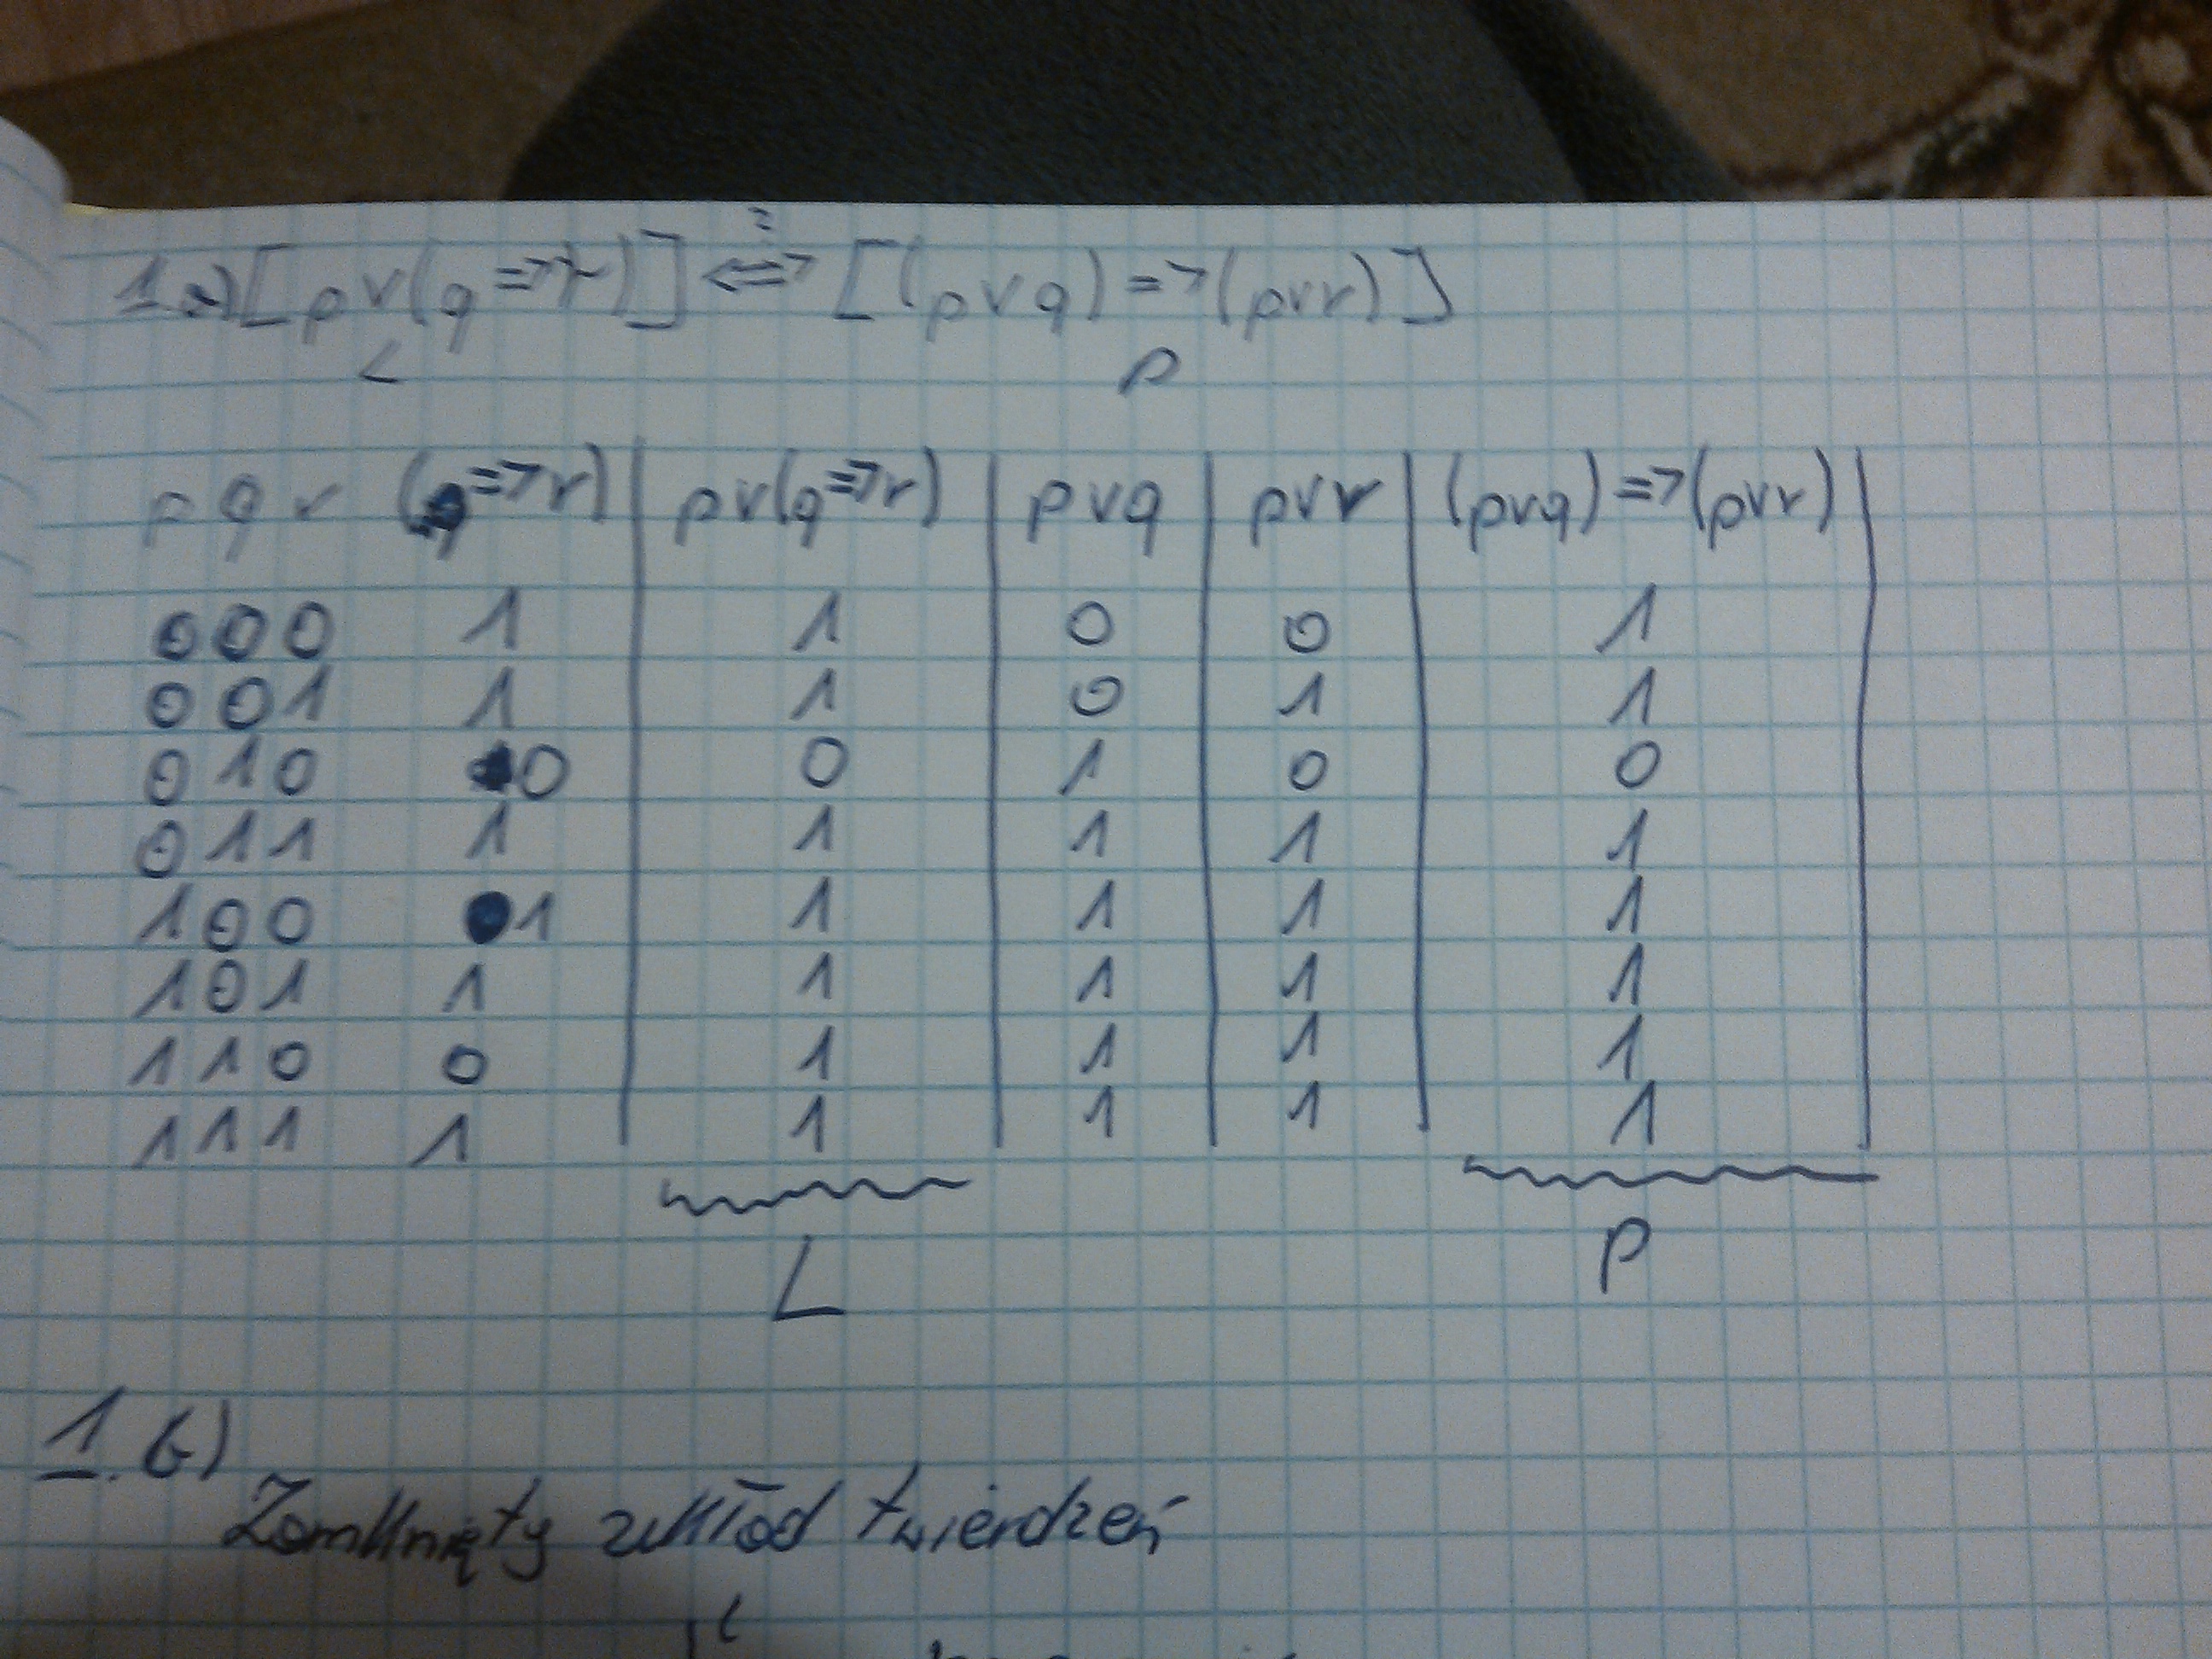 1.a) [p∨(q=>r)] <=>? [(p∨q)=>(p∨r)]
L P
p q r (q=>r) | p∨(q=>r) | p∨q | p∨r | (p∨q)=>(p∨r) |
0 0 0 1 | 1 | 0 | 0 | 1 |
0 0 1 1 | 1 | 0 | 1 | 1 |
0 1 0 0 | 0 | 1 | 0 | 0 |
0 1 1 1 | 1 | 1 | 1 | 1 |
1 0 0 1 | 1 | 1 | 1 | 1 |
1 0 1 1 | 1 | 1 | 1 | 1 |
1 1 0 0 | 1 | 1 | 1 | 1 |
1 1 1 1 | 1 | 1 | 1 | 1 |
L P
1. b)
Zamknięty układ twierdzeń